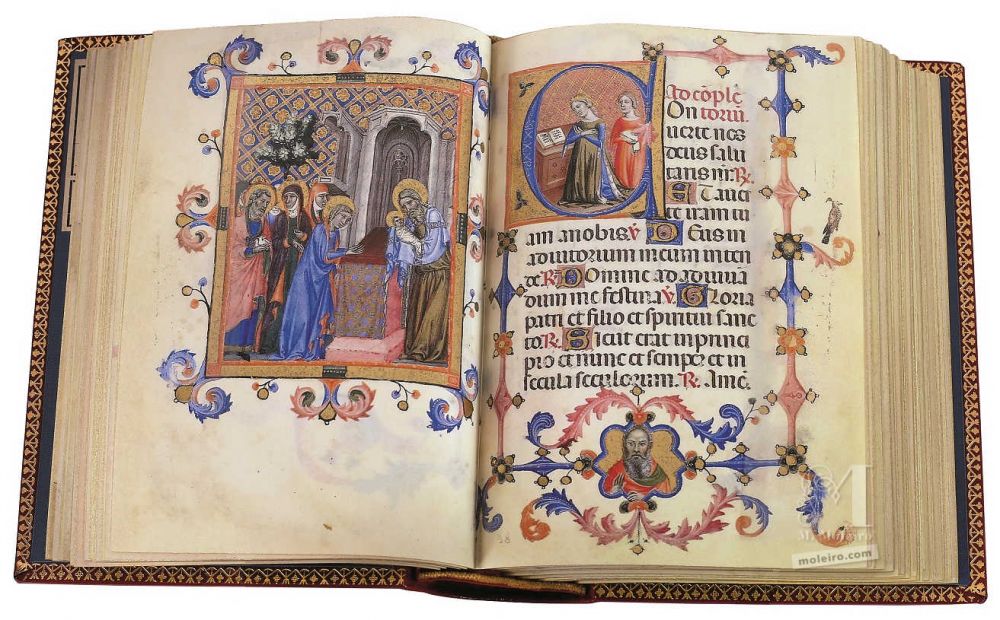 Ad cōplē
On toriū.
uerte nos
deus salu
taris nr̄. R.
Et auer
te iram tu
am a nobis. V Deus in
adiutorium meum inten
de. R Domine ad adiuuā
dum me festina. V Gloria
patri et filio et spiritui sanc
to. R Sicut erat in princi
pio et nunc et semper et in
secula seculorum. R. Amē.
38
M
Moleiro
moleiro.com